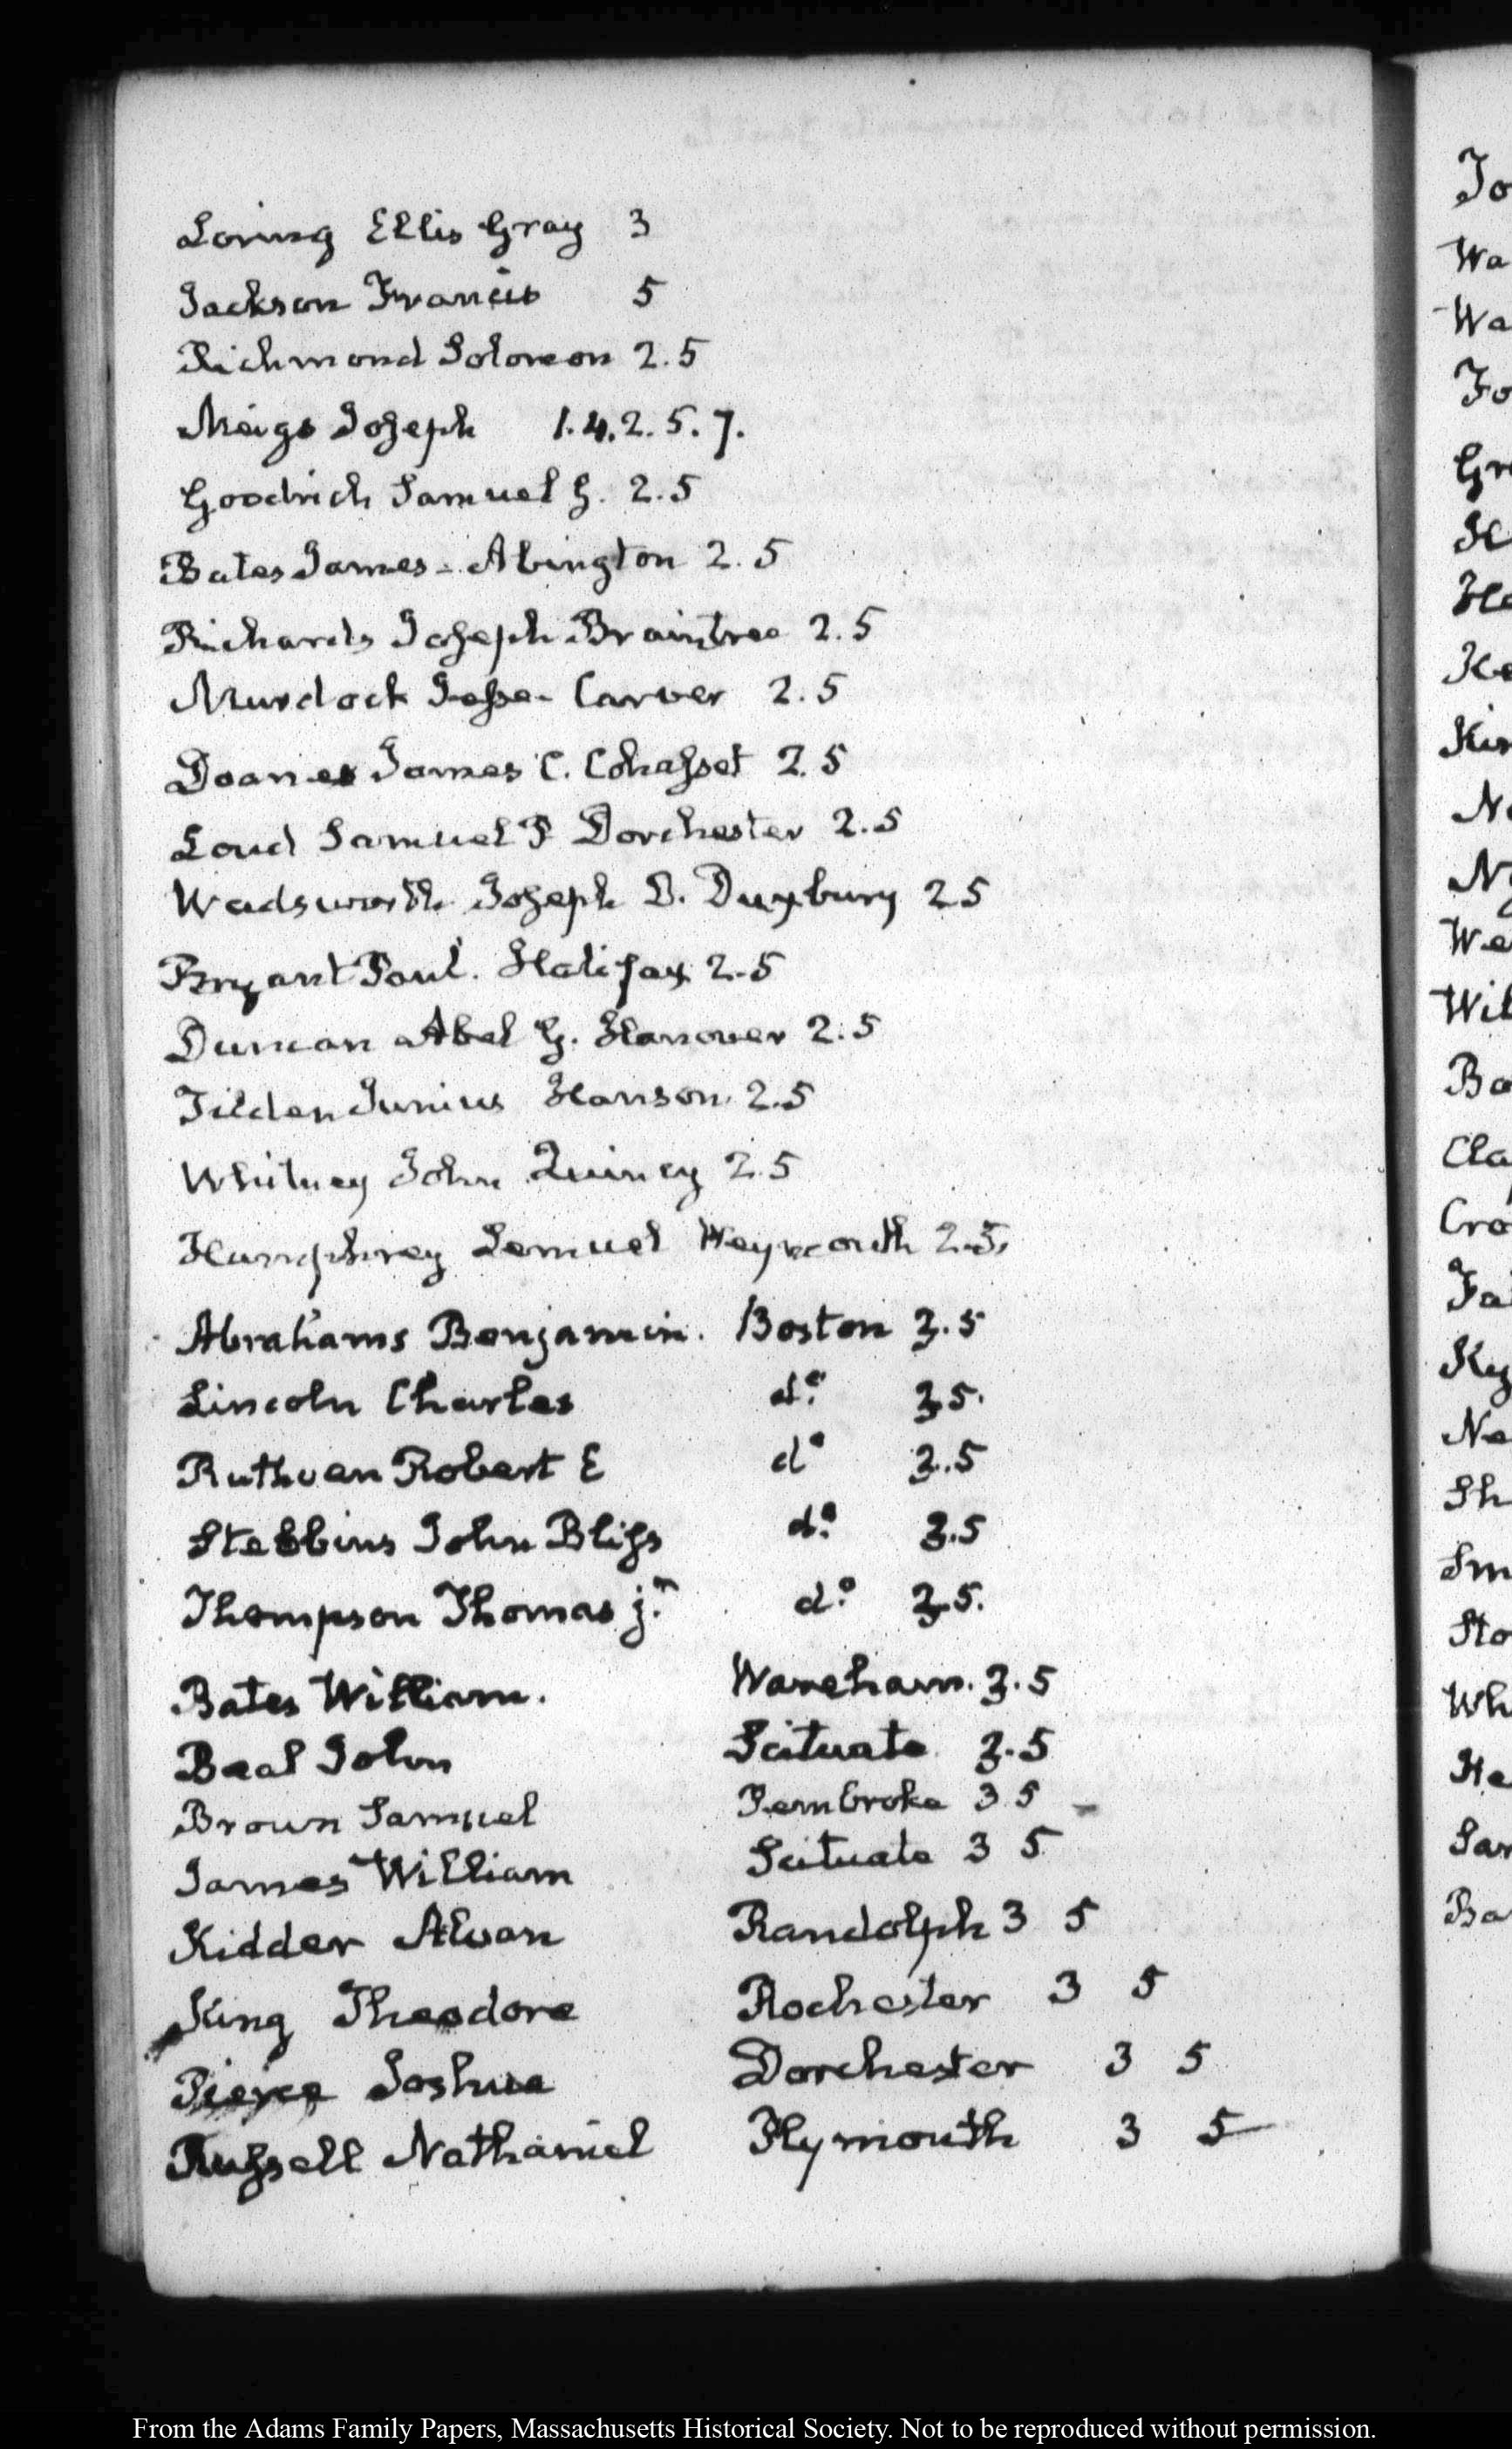 Loring Ellis Gray 3
Jackson Francis 5
Richmond Solomon 2.5
Meigs Joseph 1.4.2.5.7.
Goodrich Samuel G. 2.5
Bates James - Abington 2.5
Richards Joseph Braintree 2.5
Murdock Jesse - Carver 2.5
Doane James C. Cohasset 2.5
Loud Samuel P Dorchester 2.5
Wadsworth Joseph B. Duxbury 2 5
Bryant Paul. Halifax 2.5
Duncan Abel G. Hanover 2.5
Tilden Junius Hanson 2.5
Whitney John Quincy 2.5
Humphrey Lemuel Weymouth 2.5.
Abrahams Benjamin. Boston 3.5
Lincoln Charles do. 3.5.
Ruthven Robert E do 3.5
Stebbins John Bliss do. 3.5
Thompson Thomas jr. do. 3.5.
Bates William. Wareham. 3.5
Beal John Scituate 3.5
Brown Samuel Pembroke 3 5
James William Scituate 3 5
Kidder Alvan Randolph 3 5
King Theodore Rochester 3 5
Pierce Joshua Dorchester 3 5
Russell Nathaniel Plymouth 3 5
Jo
Wa
Wa
Fo
Gr
H
He
Ke
Kin
N
We
Wil
Ba
Cla
Cro
Fa
Ky
Ne
Sh
Sm
Sto
Wh
He
Sa
Ba
From the Adams Family Papers, Massachusetts Historical Society. Not to be reproduced without permission.